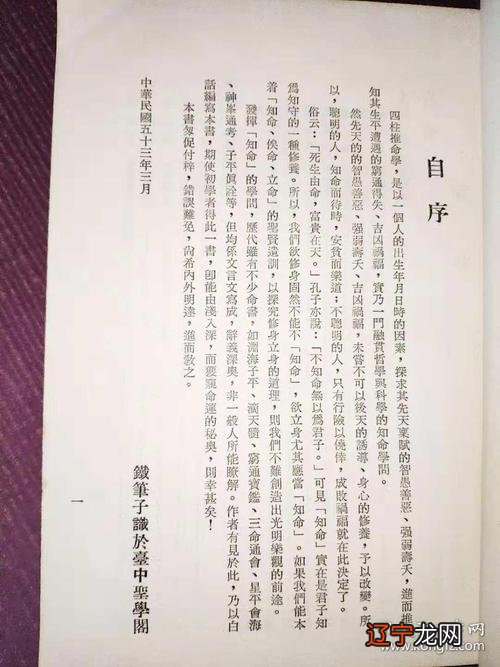 自序
四柱推命學，是以一個人的出生年月日時的因素，探求其先天稟賦的智愚善惡、强弱壽夭，進而推
知其生平遭遇的窮通得失、吉凶禍福，實乃一門融貫哲學與科學的知命學問。
然先天的的智愚善惡、强弱壽夭、吉凶禍福，未嘗不可以後天的誘導、身心的修養，予以改變。所
以，聰明的人，知命而待時，安貧而樂道；不聰明的人，只有行險以僥倖，成敗禍福就在此決定了。
俗云：「死生由命，富貴在天。」孔子亦說：「不知命無以爲君子。」可見「知命」實在是君子知
爲知守的一種修養。所以，我們欲修身固然不能不「知命」，欲立身尤其應當「知命」。如果我們能本
着「知命、俟命、立命」的聖賢遺訓，以探究修身立身的道理，則我們不難創造出光明樂觀的前途。
發揮「知命」的學問，歷代雖有不少命書，如淵海子平、滴天髓、窮通寶鑑、三命通會、星平會海
、神峯通考、子平眞詮等，但均係文言文寫成，辭義深奥，非一般人所能瞭解。作者有見於此，乃以白
話編寫本書，期使初學者得此一書，卽能由淺入深，而獲窺命運的秘奥，則幸甚矣！
本書匆促付梓，錯誤難免，尚希內外明達，進而敎之。
中華民國五十三年三月
鐵筆子識於臺中聖學閣
一
辽宁龙网